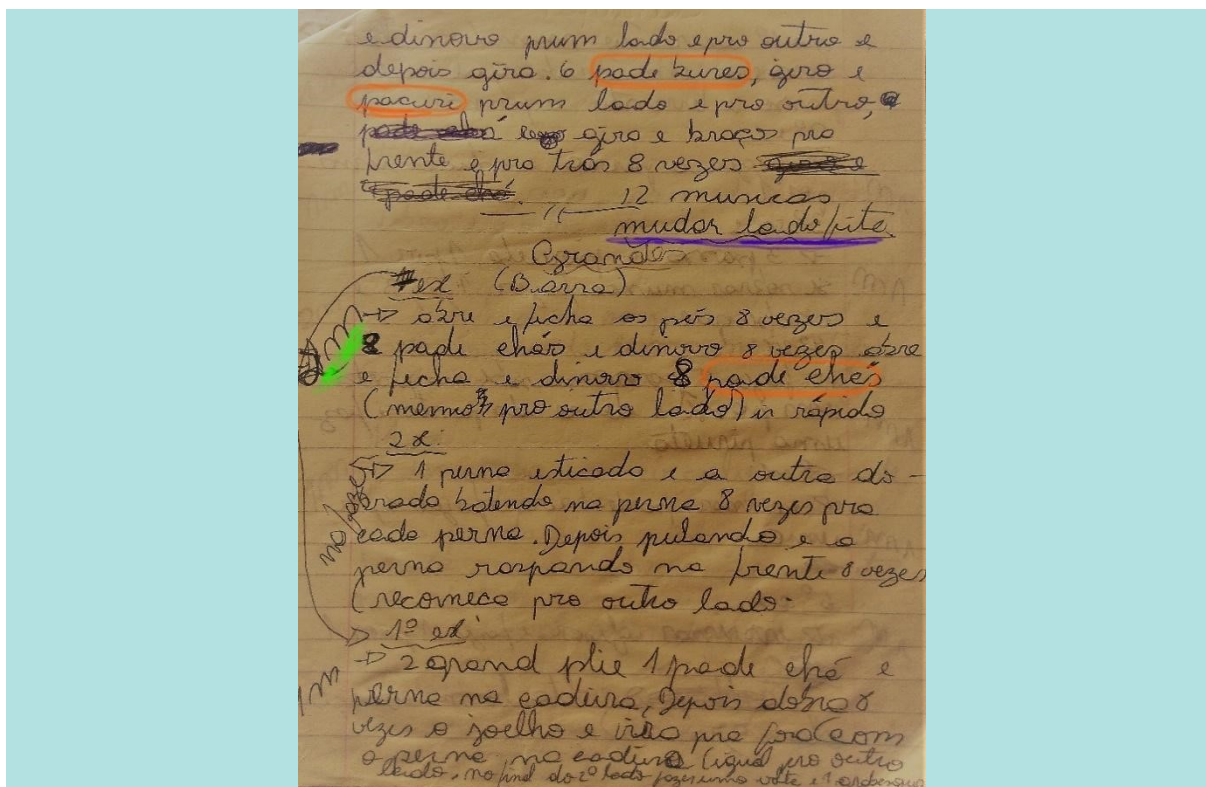 e dinovo prum lado e pro outro e
depois gira. 6 pade bures, giro e
pacuri prum lado e pro outro, e
giro e braços pra
frente e pro trás 8 vezes
12 musicas
mudar lado/fita
Grandes
ex (Barra)
1M → abre e fecha os pés 8 vezes e
8 pade chás e dinovo 8 vezes abre
e fecha e dinovo 8 pade chás
(mesmo pro outro lado) in rápido
2 x:
→ 1 perna isticada e a outra do-
brada batendo na perna 8 vezes pra
cada perna. Depois pulando e a
perna raspando na frente 8 vezes
(recomeça pro outro lado.
não fazer
1º ex
1M → 2 grand plie 1 pade chá e
perna na cadura, Depois dobra 8
vezes o joelho e pra fra (com
a perna na cadura (igual pro outro
lado, no final do 2º lado fazer uma volta e 1